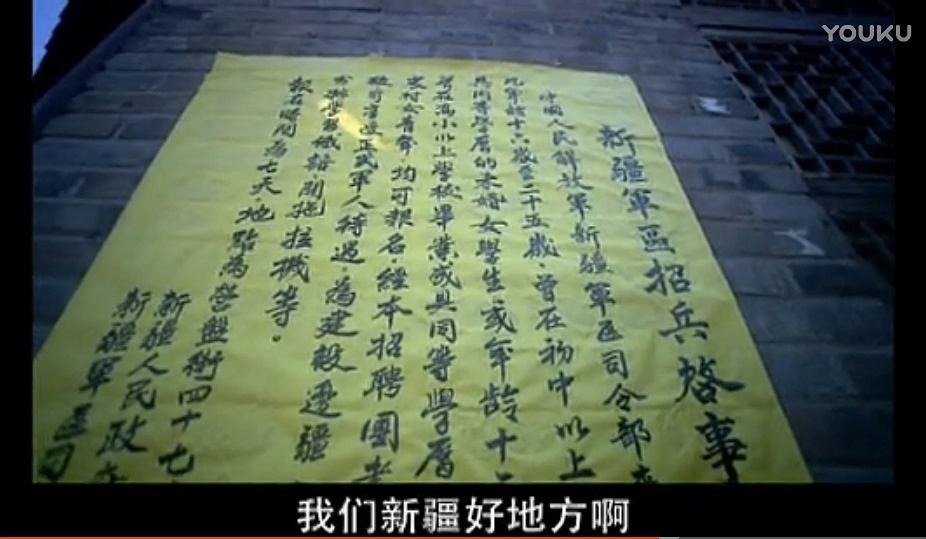 YOUKU
新疆軍區招兵啓事
中國人民解放軍新疆軍区司令部
凡年 十六歲至二十五歲,曾在初中以上
或同等學歷的未婚女學生,或年龄十
曾在高小以上學校畢業或具同等學曆
農村女青年,均可报名经本招聘團考
可者 正式軍人待遇,為建設邊疆
開拖拉機等。
報名時间為七天,地點為營盤街四十七
新疆人民政
新疆軍區司
我们新疆好地方啊